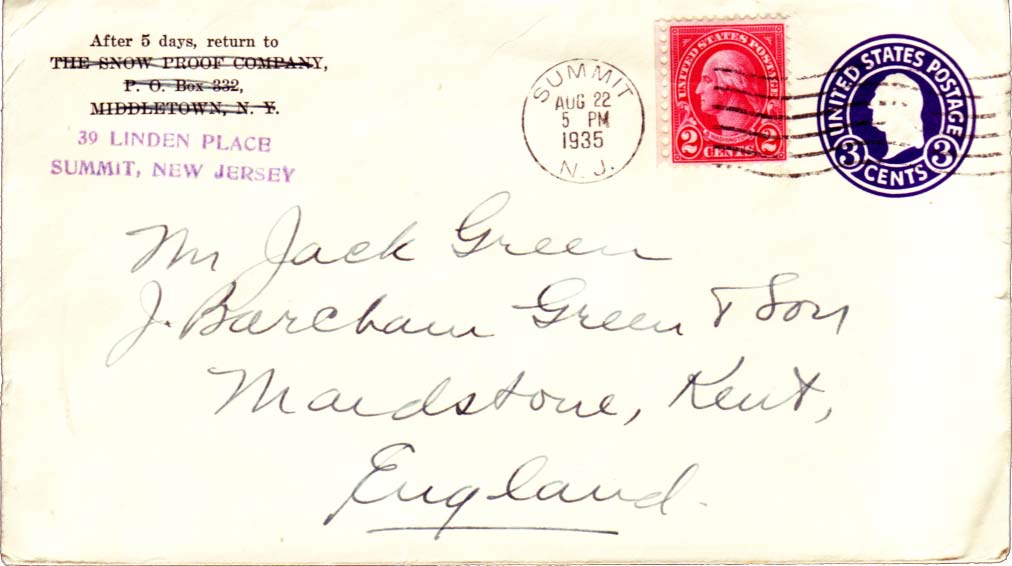 After 5 days, return to
THE SNOW PROOF COMPANY,
P. O. Box 332,
MIDDLETOWN, N. Y.
39 LINDEN PLACE
SUMMIT, NEW JERSEY
SUMMIT
AUG 22
5 PM
1935
N. J.
UNITED STATES POSTAGE
2 CENTS 2
UNITED STATES POSTAGE
3 CENTS 3
Mr Jack Green
J. Barcham Green & Son
Maidstone, Kent,
England.